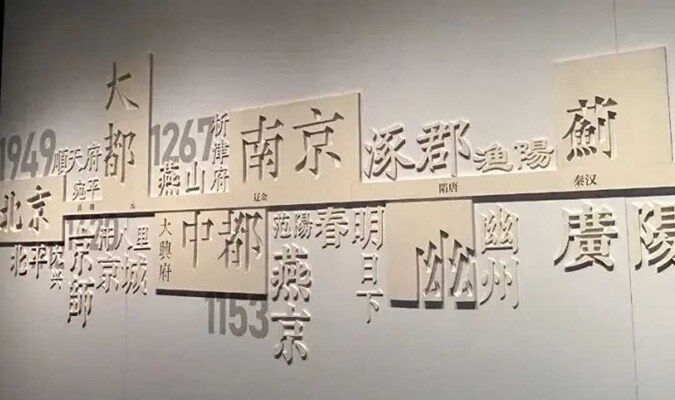 1949
北京
順天府
宛平
大都
元
1267
燕山
析津府
南京
辽金
涿郡
隋唐
漁陽
薊
秦汉
北平
大兴
京師
京城
八里
大興府
中都
1153
范陽
燕京
春明
日下
幽
幽州
廣陽